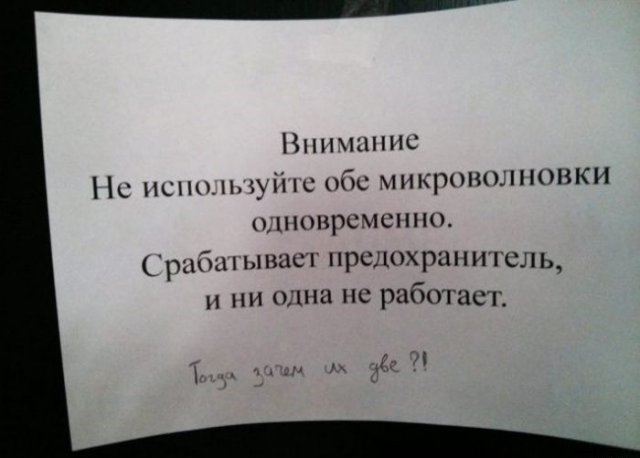 Внимание
Не используйте обе микроволновки
одновременно.
Срабатывает предохранитель,
и ни одна не работает.
Тогда зачем их две ?!